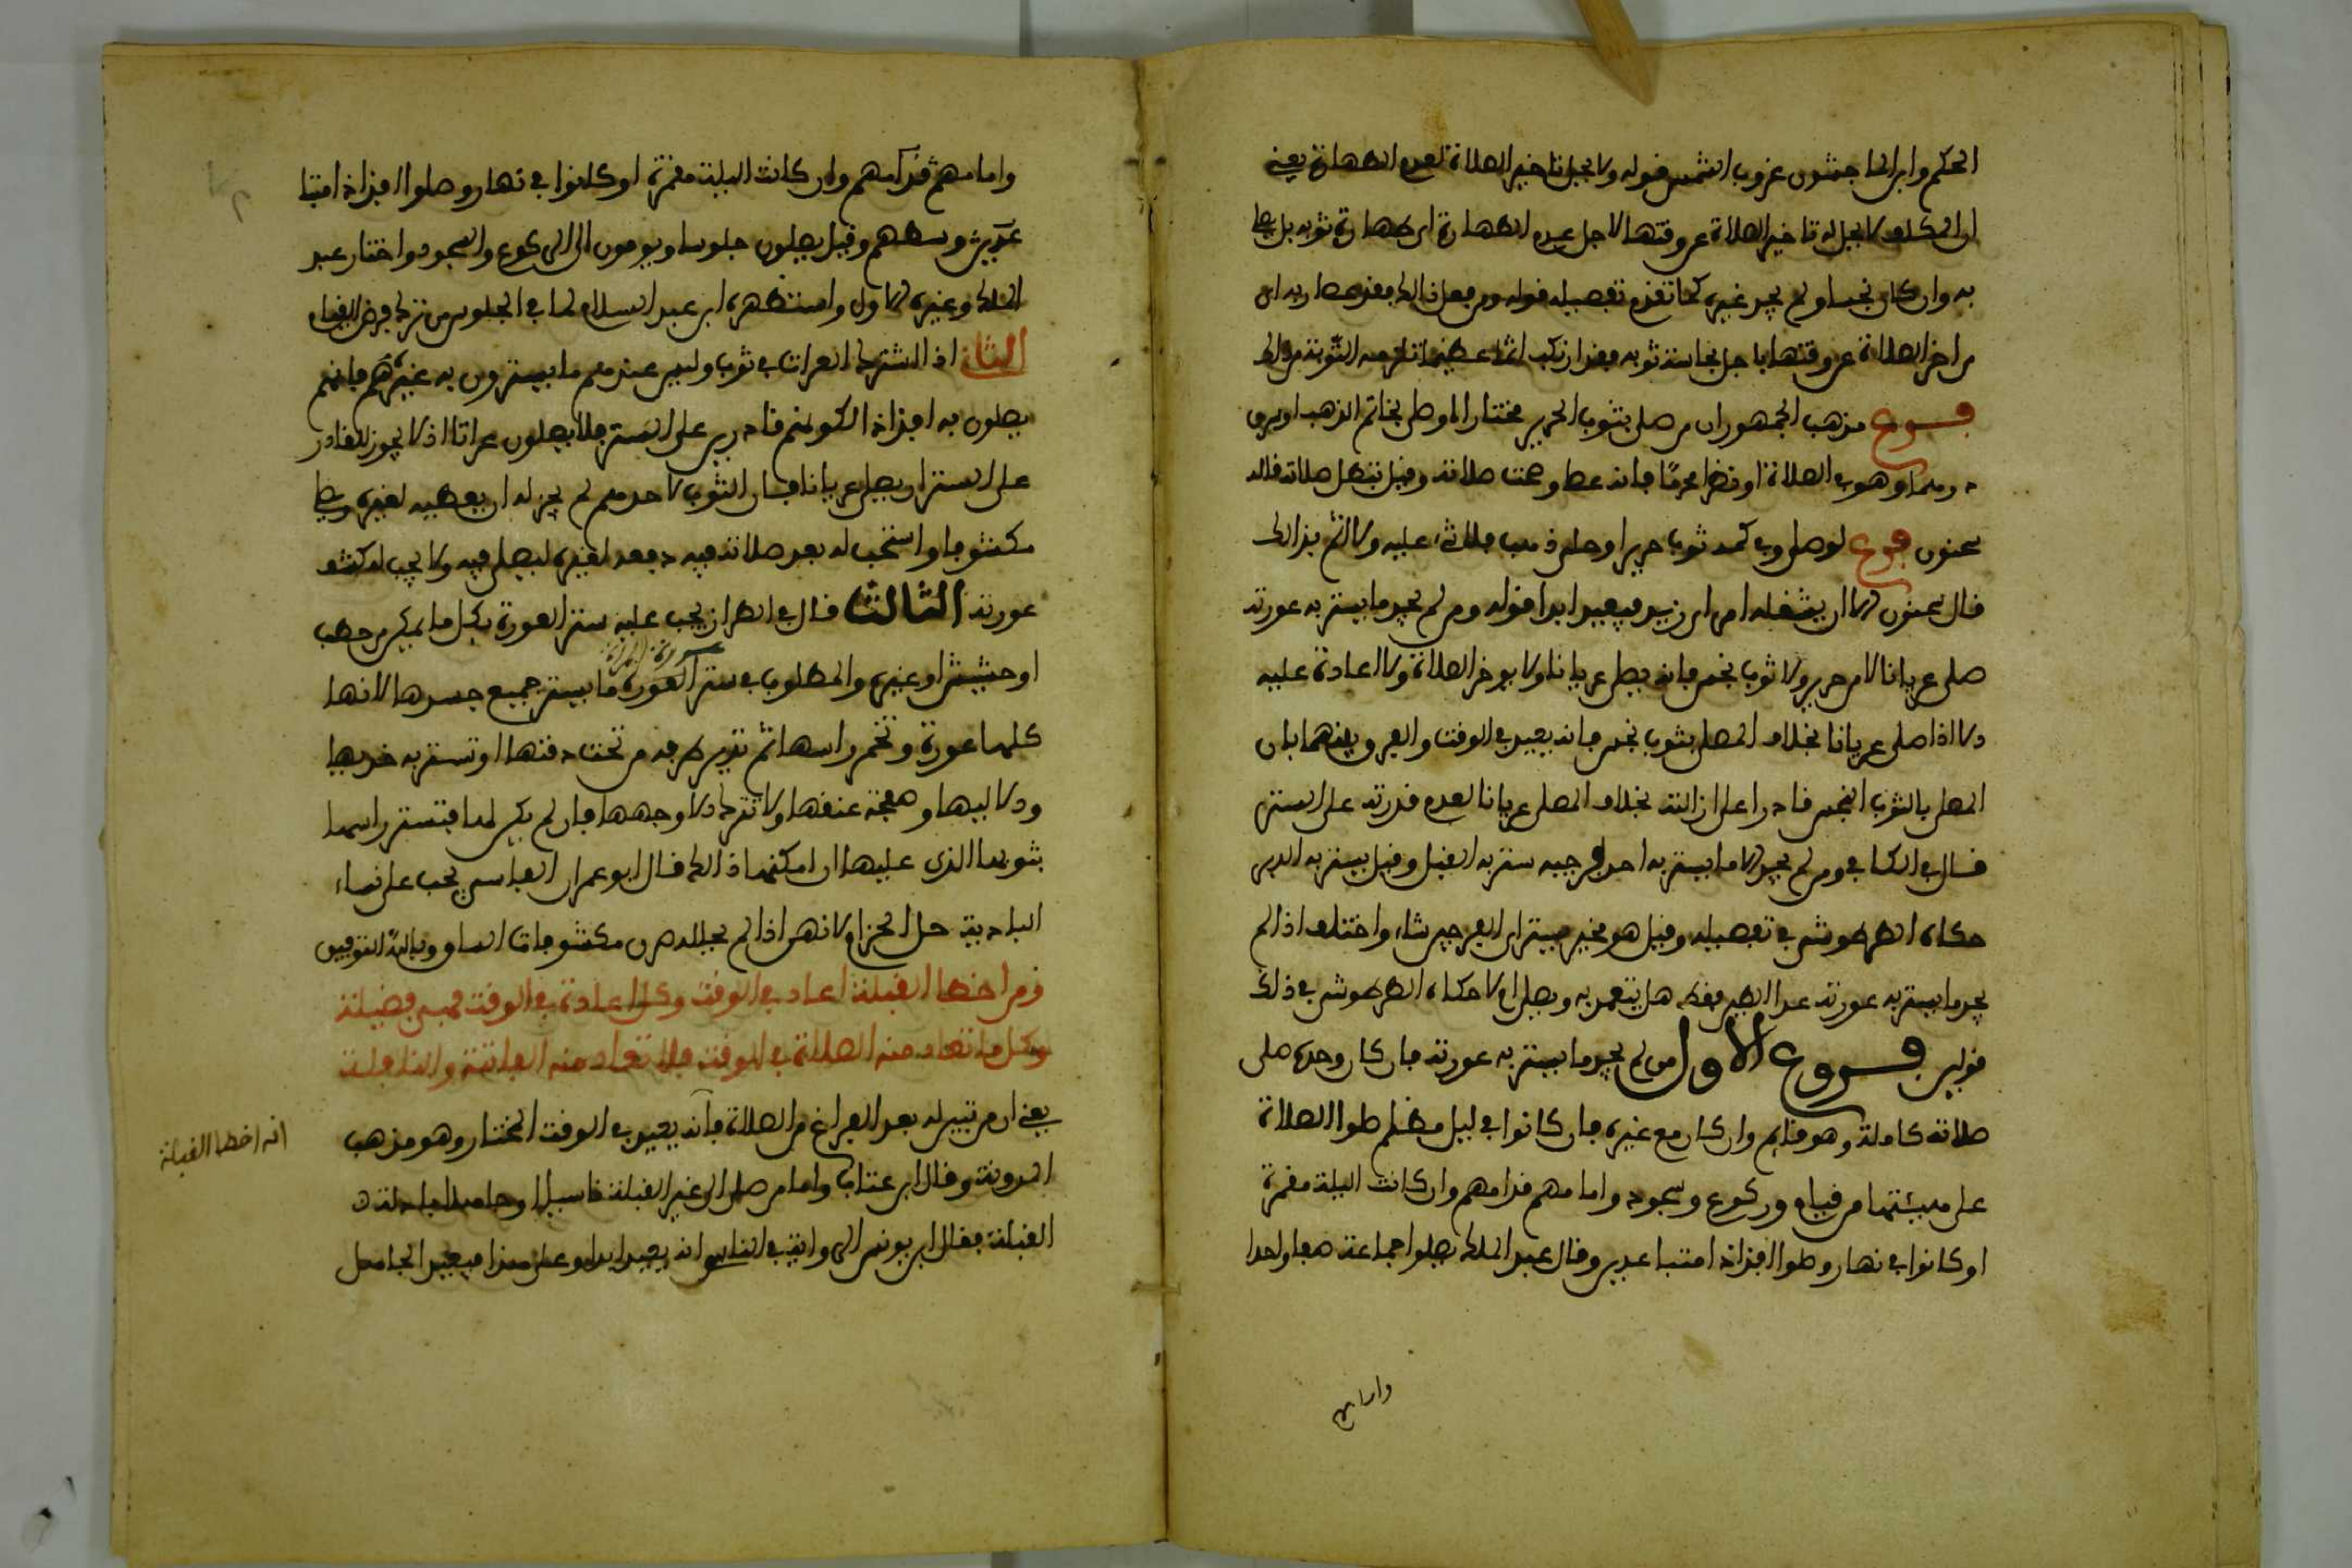 الحكم وابن الماجشون غروب الشمس قوله ولا يحل تاخير الصلاة لعدم الطهارة يعني
ان المكلف لا يحل له تاخير الصلاة عن وقتها لاجل عدم الطهارة اي طهارة ثوبه بل يصلي
به وان كان نجسا ولم يجد غيره كما تقدم تفصيله قوله ومن فعل ذالك فقد عصا ربه اي
من اخر الصلاة عن وقتها لاجل نجاسة ثوبه فقد ارتكب اثما عظيما تلزمه التوبة من ذالك
فرع مذهب الجمهور ان من صلى بثوب الحرير مختارا او صلى بخاتم الذهب او سرق
درهما وهو في الصلاة او نظر محرما فانه عصا وصحت صلاته وقيل تبطل صلاته قاله
سحنون فرع لو صلى وفي كمه ثوب حرير او حلي ذهب فلا شيء عليه ولا اثم بذالك
قال سحنون الا ان يشغله امره ابن زيد فيعيد ابدا قوله ومن لم يجد ما يستر به عورته
صلى عريانا لا من حرير ولا ثوب نجس فانه يصلي عريانا ولا يوخر الصلاة ولا اعادة عليه
ولا اذا صلى عريانا بخلاف المصلي بثوب نجس فانه يعيد في الوقت والفرق بينهما بان
المصلي بالثوب النجس قادرا على ازالته بخلاف المصلي عريانا لعدم قدرته على الستر
قال في الكافي ومن لم يجد الا ما يستر به احد فرجيه ستر به القبل وقيل يستر به الدبر
حكاه الطرطوشي في تفصيله وقيل هو مخير فيستر اي الفرجين شاء واختلف اذا لم
يجد ما يستر به عورته عدا الطين فقط هل يتعمد به ويصلي ام لا حكاه الطرطوشي في ذلك
قولين فروع الاول من لم يجد ما يستر به عورته فان كان وحده صلى
صلاته كاملة وهو قايم وان كان مع غيره فان كانوا في ليل مظلم صلوا الصلاة
على هيئتها من قيام وركوع وسجود وامامهم قدامهم وان كانت الليلة مقمرة
او كانوا في نهار وصلوا افذاذ امتباعدين وقال عبد الملك يصلوا جماعة صفا واحدا
وامامهم
وامامهم قدامهم وان كانت الليلة مقمرة او كانوا في نهار وصلوا افذاذ امتبا
عدين وسطهم وقيل يصلون جلوسا ويومون الى الركوع والسجود واختار عبد
الملك وغيره الاول واستظهره ابن عبد السلام لما في الجلوس من ترك فرض القيام
الثاني اذا اشترك العراة في ثوب وليس عندهم ما يسترون به غيرهم فانهم
يصلون به افذاذ الكونهم قادرين على الستر فلا يصلون عراتا اذ لا يجوز للقادر
على الستر ان يصلي عريانا فان كان الثوب لاحدهم لم يجز له ان يعطيه لغيره ويصلي
مكشوفا واستحب له بعد صلاته فيه دفعه لغيره ليصلي فيه ولا يجب له كشف
عورته الثالث قال في الطراز يجب عليه ستر العورة بكل ما يمكن من حطب
او حشيش او غيره والمطلوب في ستر العورة ما يستر جميع جسدها لانها
عورة المراة
كلها عورة وتخمر راسها ثم تدير طرفه من تحت دقنها او تستر به خديها
ودلاليها وصفحة عنقها ولا تترك الا وجهها فان لم يكن لها فتستر راسها
بثوبها الذي عليها ان امكنها ذالك قال ابو عمران الفاسي يجب على نساء
البادية حل الحزام لانهن اذا لم يحللنه صرن مكشوفات الساق وبالله التوفيق
ومن اخطا القبلة اعاد في الوقت وكل اعادة في الوقت فهي فضيلة
وكل ما تعاد منه الصلاة في الوقت فلا تعاد منه الفائتة والنافلة
يعني ان من تبين له بعد الفراغ من الصلاة فانه يعيد في الوقت المختار وهو مذهب
انه اخطا القبلة
المدونة وقال ابن عتاب واما من صلى الى غير القبلة ناسيا او جاهلا بادلة
القبلة فقال ابن يونس الرواية في الناسي انه يعيد ابدا وعلى هذا فيعيد الجاهل